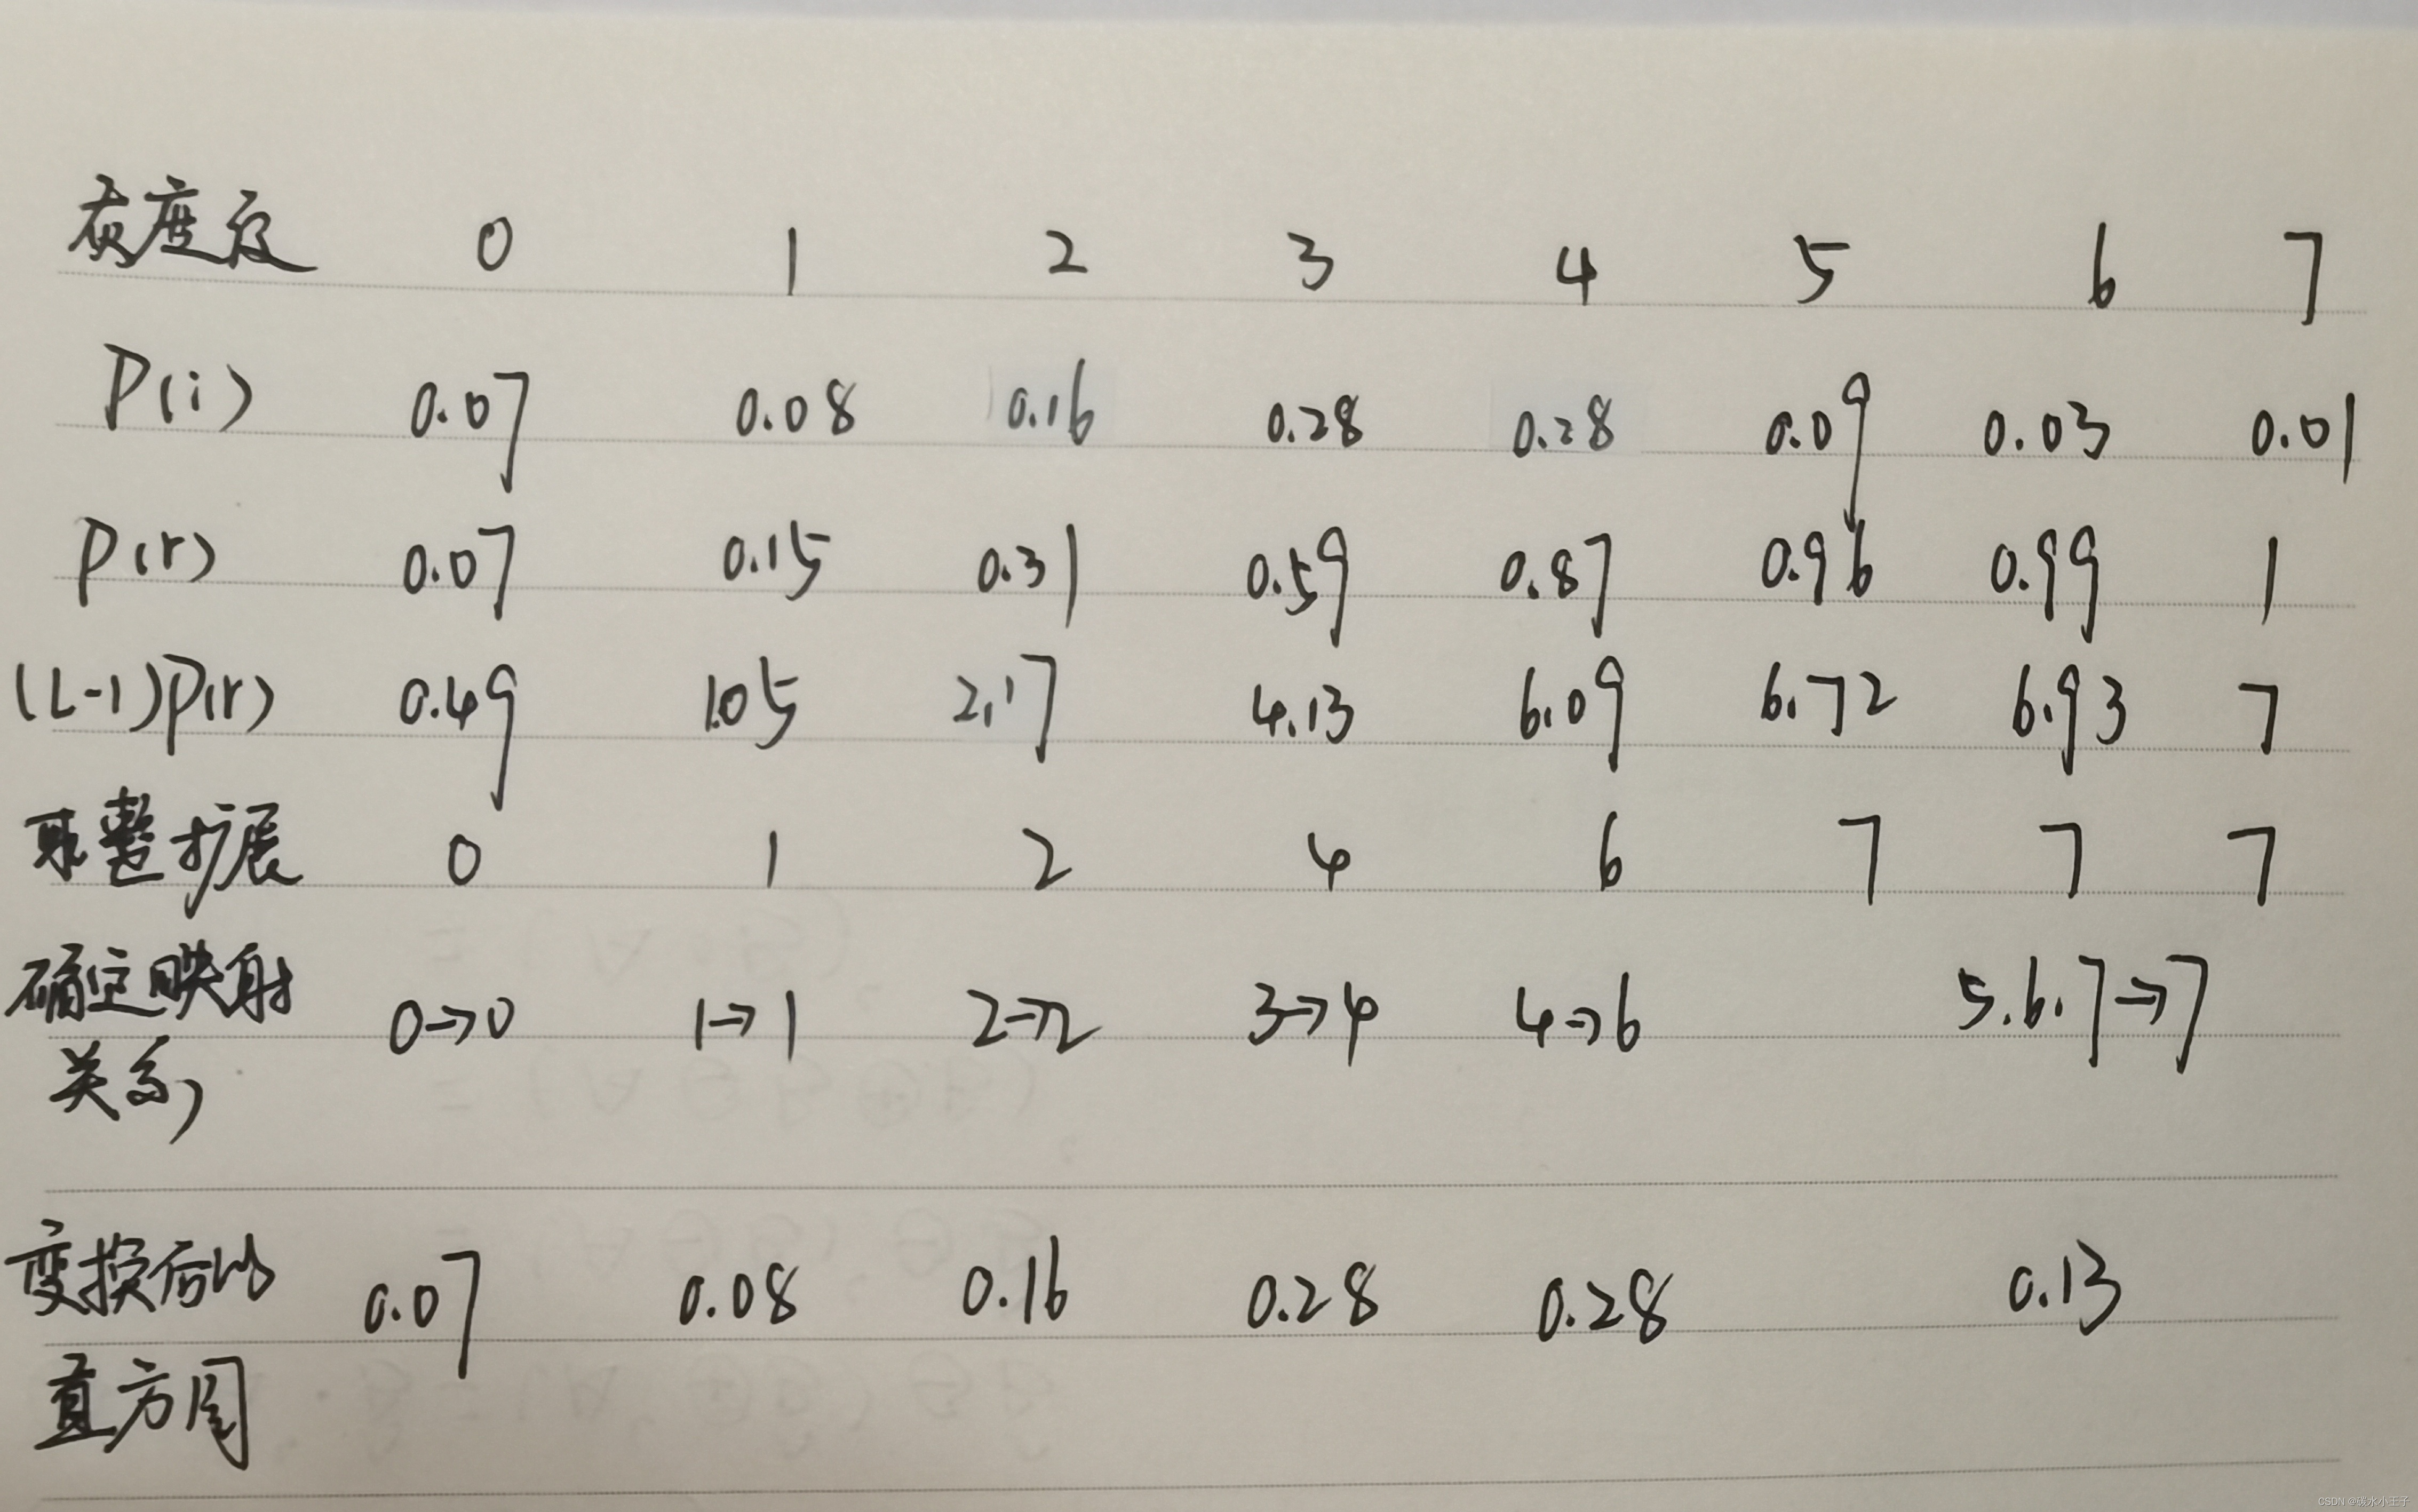 灰度级 0 1 2 3 4 5 6 7
P(i) 0.07 0.08 0.16 0.28 0.28 0.09 0.03 0.01
P(r) 0.07 0.15 0.31 0.59 0.87 0.96 0.99 1
(L-1)P(r) 0.49 1.05 2.17 4.13 6.09 6.72 6.93 7
取整扩展 0 1 2 4 6 7 7 7
确定映射 0→0 1→1 2→2 3→4 4→6 5.6.7→7
关系
变换后的 0.07 0.08 0.16 0.28 0.28 0.13
直方图
CSDN @碳水小王子